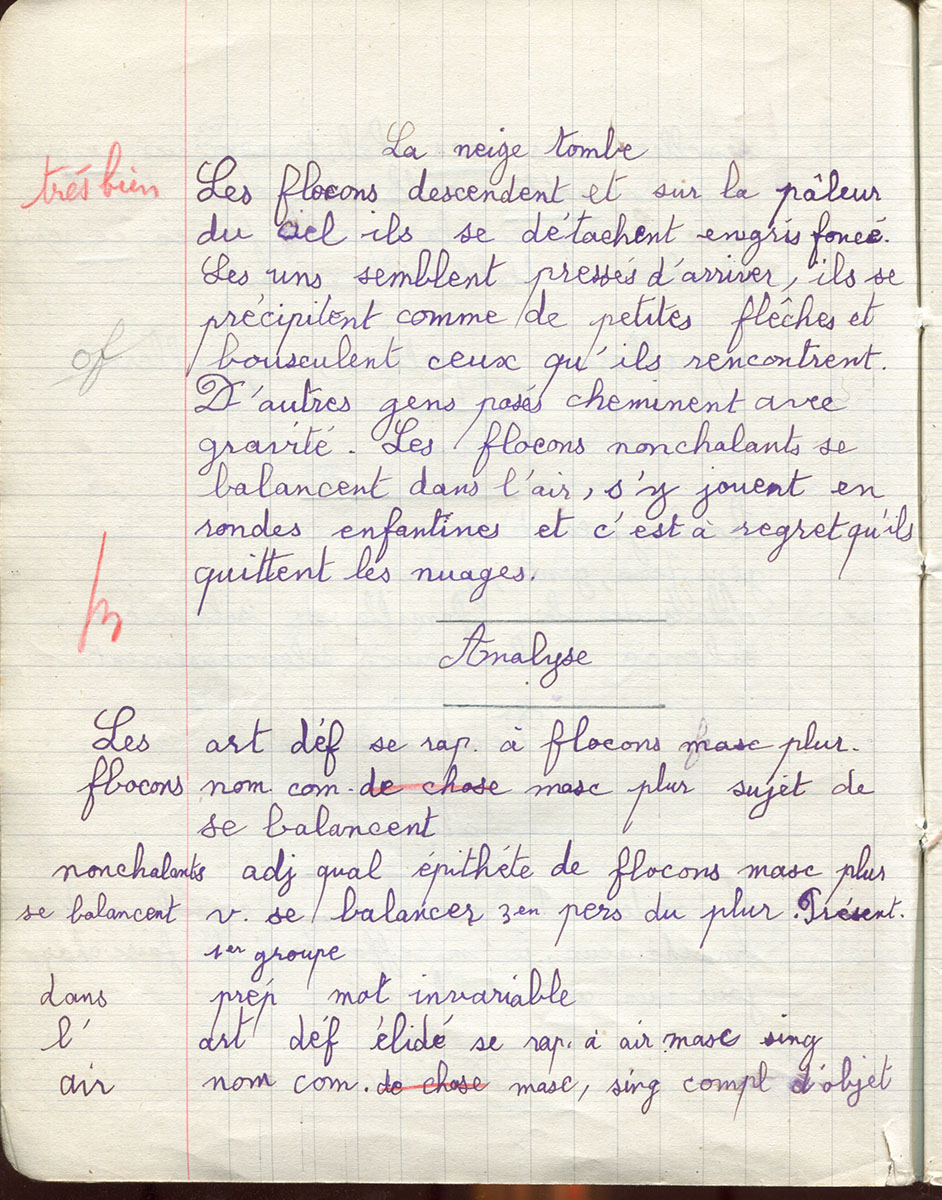 La neige tombe
très bien Les flocons descendent et sur la pâleur
du ciel ils se détachent en gris foncé.
Les uns semblent pressés d'arriver, ils se
précipitent comme de petites flêches et
bousculent ceux qu'ils rencontrent.
D'autres gens posés cheminent avec
gravité. Les flocons nonchalants se
balancent dans l'air, s'y jouent en
rondes enfantines et c'est à regret qu'ils
quittent les nuages.
Analyse
Les art déf se rap. à flocons masc plur.
flocons nom com. de chose masc plur sujet de
se balancent
nonchalants adj qual épithéte de flocons masc plur
se balancent v. se balancer 3en pers du plur. Présent.
1er groupe
dans prép mot invariable
l' art déf élidé se rap. à air masc sing
air nom com. de chose masc, sing compl d'objet